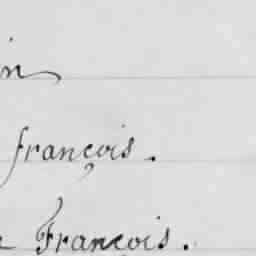 in
françois.
François.